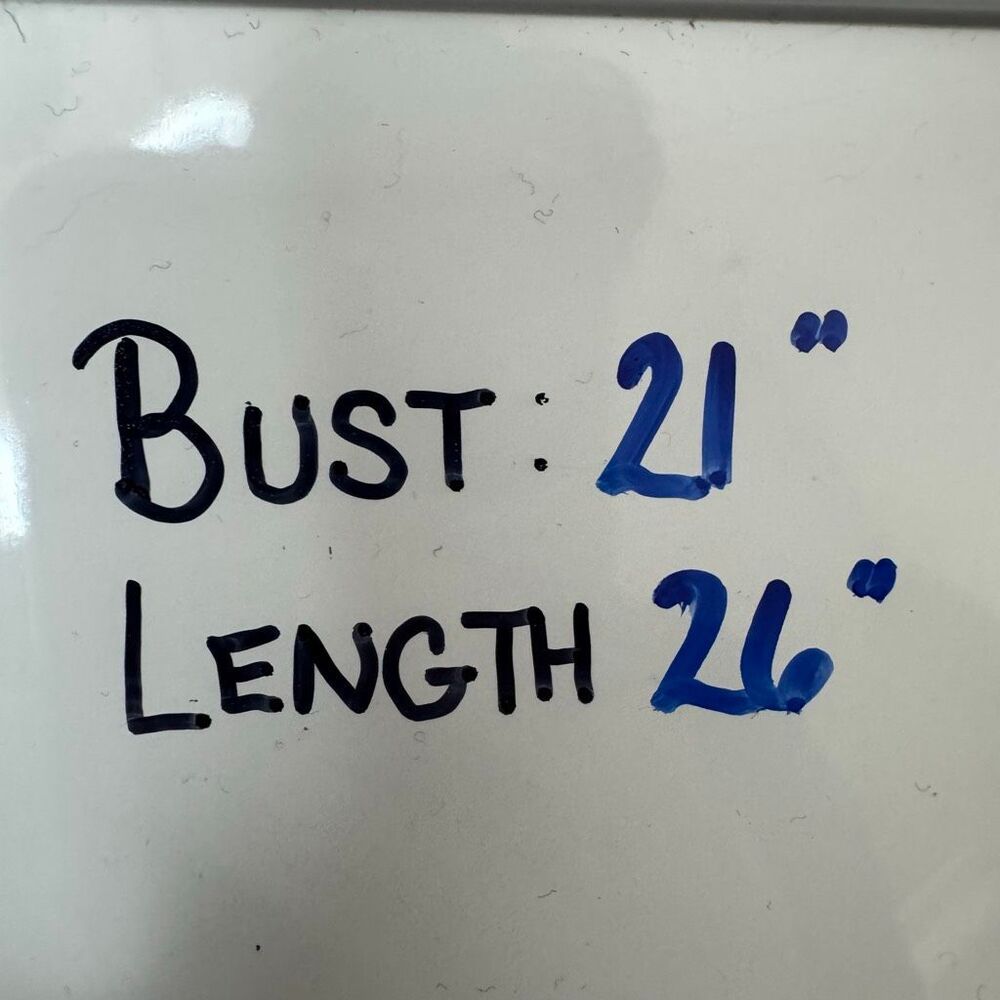 BUST: 21"
LENGTH 26"